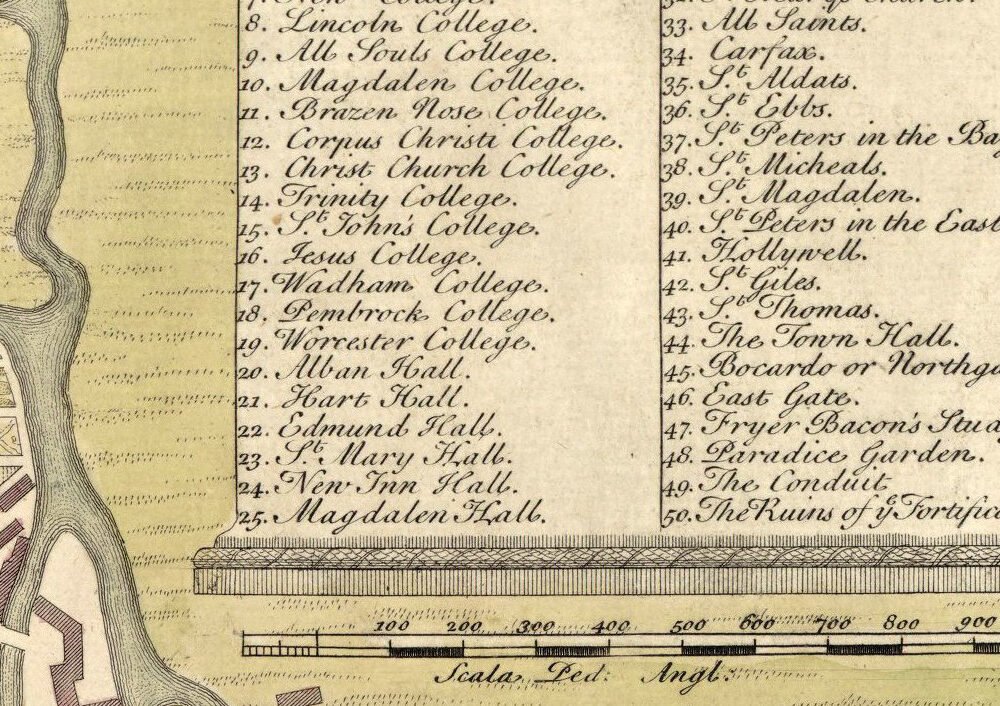 7. New College.
8. Lincoln College.
9. All Souls College.
10. Magdalen College.
11. Brazen Nose College.
12. Corpus Christi College.
13. Christ Church College.
14. Trinity College.
15. St. John's College.
16. Jesus College.
17. Wadham College.
18. Pembrock College.
19. Worcester College.
20. Alban Hall.
21. Hart Hall.
22. Edmund Hall.
23. St. Mary Hall.
24. New Inn Hall.
25. Magdalen Hall.
33. All Saints.
34. Carfax.
35. St. Aldats.
36. St. Ebbs.
37. St. Peters in the
38. St. Micheals.
39. St. Magdalen.
40. St. Peters in the East
41. Hollywell.
42. St. Giles.
43. St. Thomas.
44. The Town Hall.
45. Bocardo or
46. East Gate.
47. Fryer Bacon's
48. Paradice Garden.
49. The Conduit
50. The Ruins of ye
100 200 300 400 500 600 700 800 900
Scala Ped: Angl: